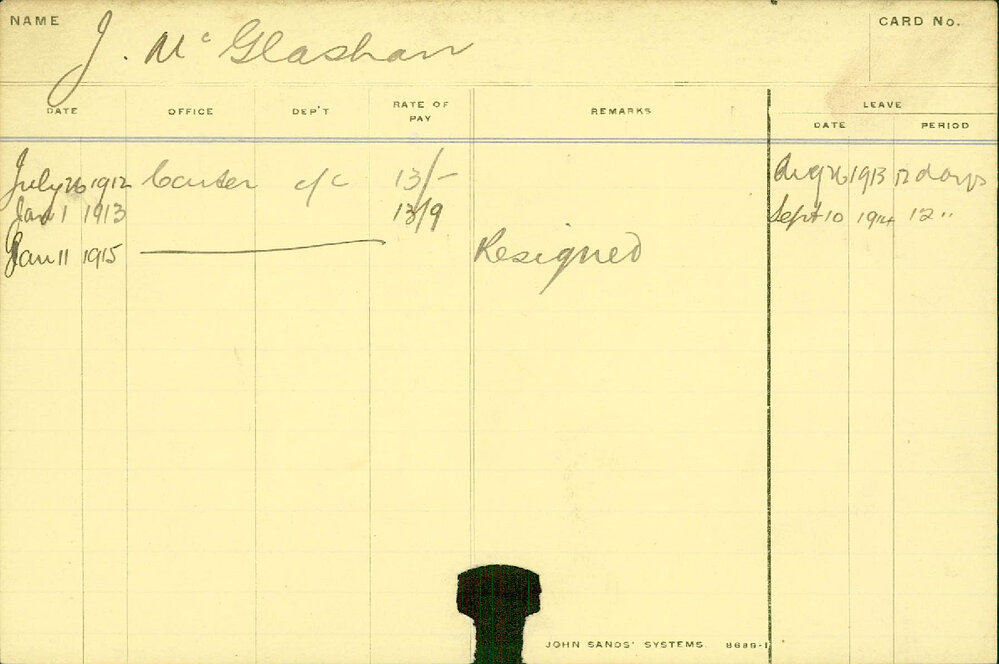 NAME
CARD No.
J. McGlashan
DATE OFFICE DEP'T RATE OF PAY REMARKS LEAVE
DATE PERIOD
July 26 1912 Carter c/c 13/- Aug 26 1913 12 days
Jan 1 1913 13/9 Sept 10 1914 12 "
Jan 11 1915 Resigned
JOHN SANDS' SYSTEMS.